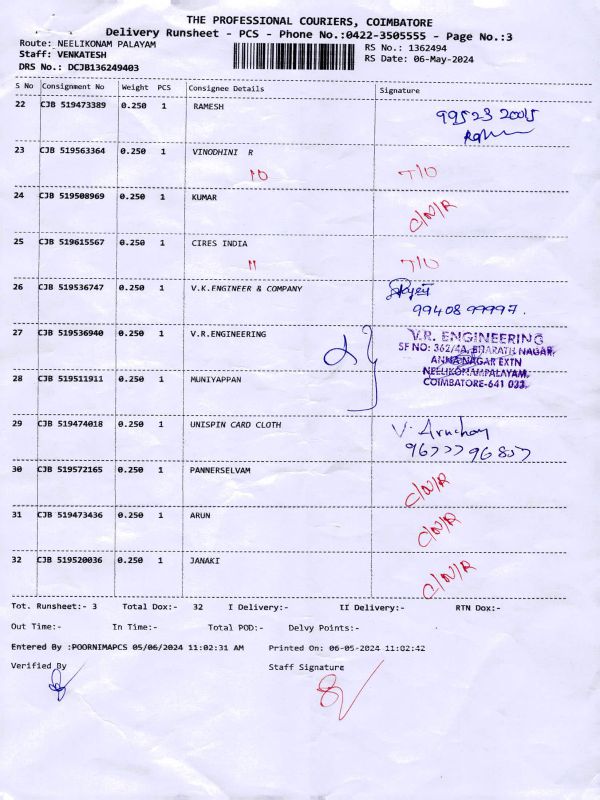 THE PROFESSIONAL COURIERS, COIMBATORE
Delivery Runsheet - PCS - Phone No.:0422-3505555 - Page No.:3
Route: NEELIKONAM PALAYAM RS No.: 1362494
Staff: VENKATESH RS Date: 06-May-2024
DRS No.: DCJB136249403
S No Consignment No Weight PCS Consignee Details Signature
22 CJB 519473389 0.250 1 RAMESH
99523 20015
23 CJB 519563364 0.250 1 VINODHINI R
T/O
24 CJB 519508969 0.250 1 KUMAR
C/N/R
25 CJB 519615567 0.250 1 CIRES INDIA
T/O
26 CJB 519536747 0.250 1 V.K.ENGINEER & COMPANY
99408 99997.
27 CJB 519536940 0.250 1 V.R.ENGINEERING
V.R. ENGINEERING
SF NO: 362/4A, BHARATH NAGAR,
ANNA NAGAR EXTN
NEELIKONAMPALAYAM,
COIMBATORE-641 033.
28 CJB 519511911 0.250 1 MUNIYAPPAN
29 CJB 519474018 0.250 1 UNISPIN CARD CLOTH
V. Arunchay
30 CJB 519572165 0.250 1 PANNERSELVAM
C/N/R
31 CJB 519473436 0.250 1 ARUN
C/N/R
32 CJB 519520036 0.250 1 JANAKI
C/N/R
Tot. Runsheet:- 3 Total Dox:- 32 I Delivery:- II Delivery:- RTN Dox:-
Out Time:- In Time:- Total POD:- Delvy Points:-
Entered By :POORNIMAPCS 05/06/2024 11:02:31 AM Printed On: 06-05-2024 11:02:42
Verified By Staff Signature